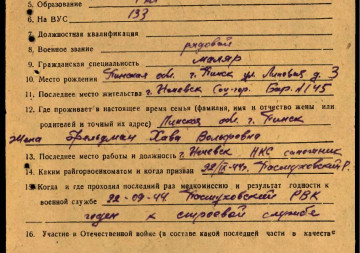 5. Образование
6. На ВУС 133
7. Должностная квалификация
8. Военное звание рядовой
9. Гражданская специальность маляр
10. Место рождения Пинская обл. г. Пинск ул. д. 3
11. Последнее место жительства г. Ижевск Соц-гор. Бар. №145
12. Где проживает в настоящее время семья (фамилия, имя и отчество жены или
родителей и точный их адрес) Пинская обл. г. Пинск
жена Фельдман Хава
13. Последнее место работы и должность г. Ижевск НКС
14. Каким райгорвоенкоматом и когда призван 22/IX-44г.
15. Когда и где проходил последний раз медкомиссию и результат годности к
военной службе 22-09-44. РВК
годен к строевой службе
16. Участие в Отечественной войне (в составе какой последней части в качестве